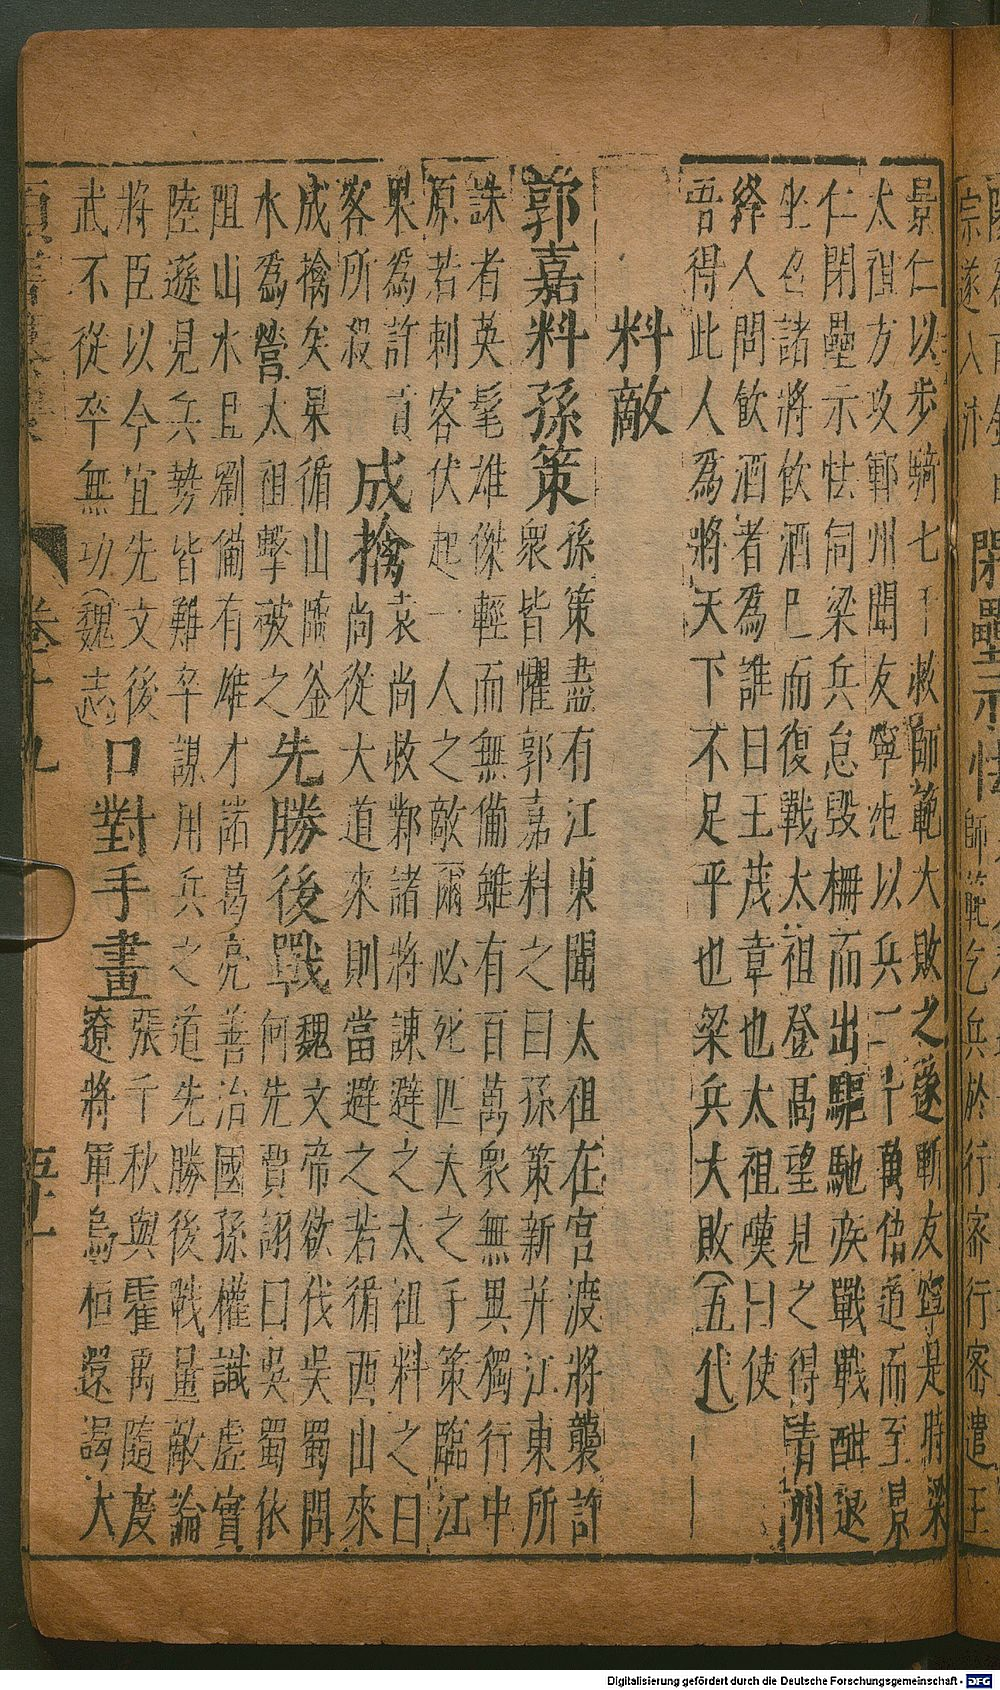 宗遂入汴 閉壘示怯 師範乞兵於行密行密遣王
景仁以步騎七千救師範大敗之遂斬友寧是時梁
太祖方攻鄆州聞友寧死以兵二十萬倍道而至景
仁閉壘示怯伺梁兵怠毀柵而出驅馳疾戰戰酣退
坐召諸將飲酒已而復戰太祖登高望見之得青州
降人問飲酒者為誰曰王茂章也太祖嘆曰使
吾得此人為將天下不足平也梁兵大敗(五代
料敵
郭嘉料孫策
孫策盡有江東聞太祖在官渡將襲許
衆皆懼郭嘉料之曰孫策新并江東所
誅者英髦雄傑輕而無備雖有百萬衆無異獨行中
原若刺客伏起一人之敵爾必死匹夫之手策臨江
果為許貢
客所殺
成擒
袁尚救鄴諸將諫避之太祖料之曰
尚從大道來則當避之若循西山來
成擒矣果循山臨釜
水為營太祖擊破之
先勝後戰
魏文帝欲伐吳蜀問
何先賈詡曰吳蜀依
阻山水且劉備有雄才諸葛亮善治國孫權識虛實
陸遜見兵勢皆難卒謀用兵之道先勝後戰量敵論
將臣以今宜先文後
武不從卒無功(魏志
口對手畫
張千秋與霍禹隨度
遼將軍烏桓還謁大
卷十九
Digitalisierung gefördert durch die Deutsche Forschungsgemeinschaft - DFG